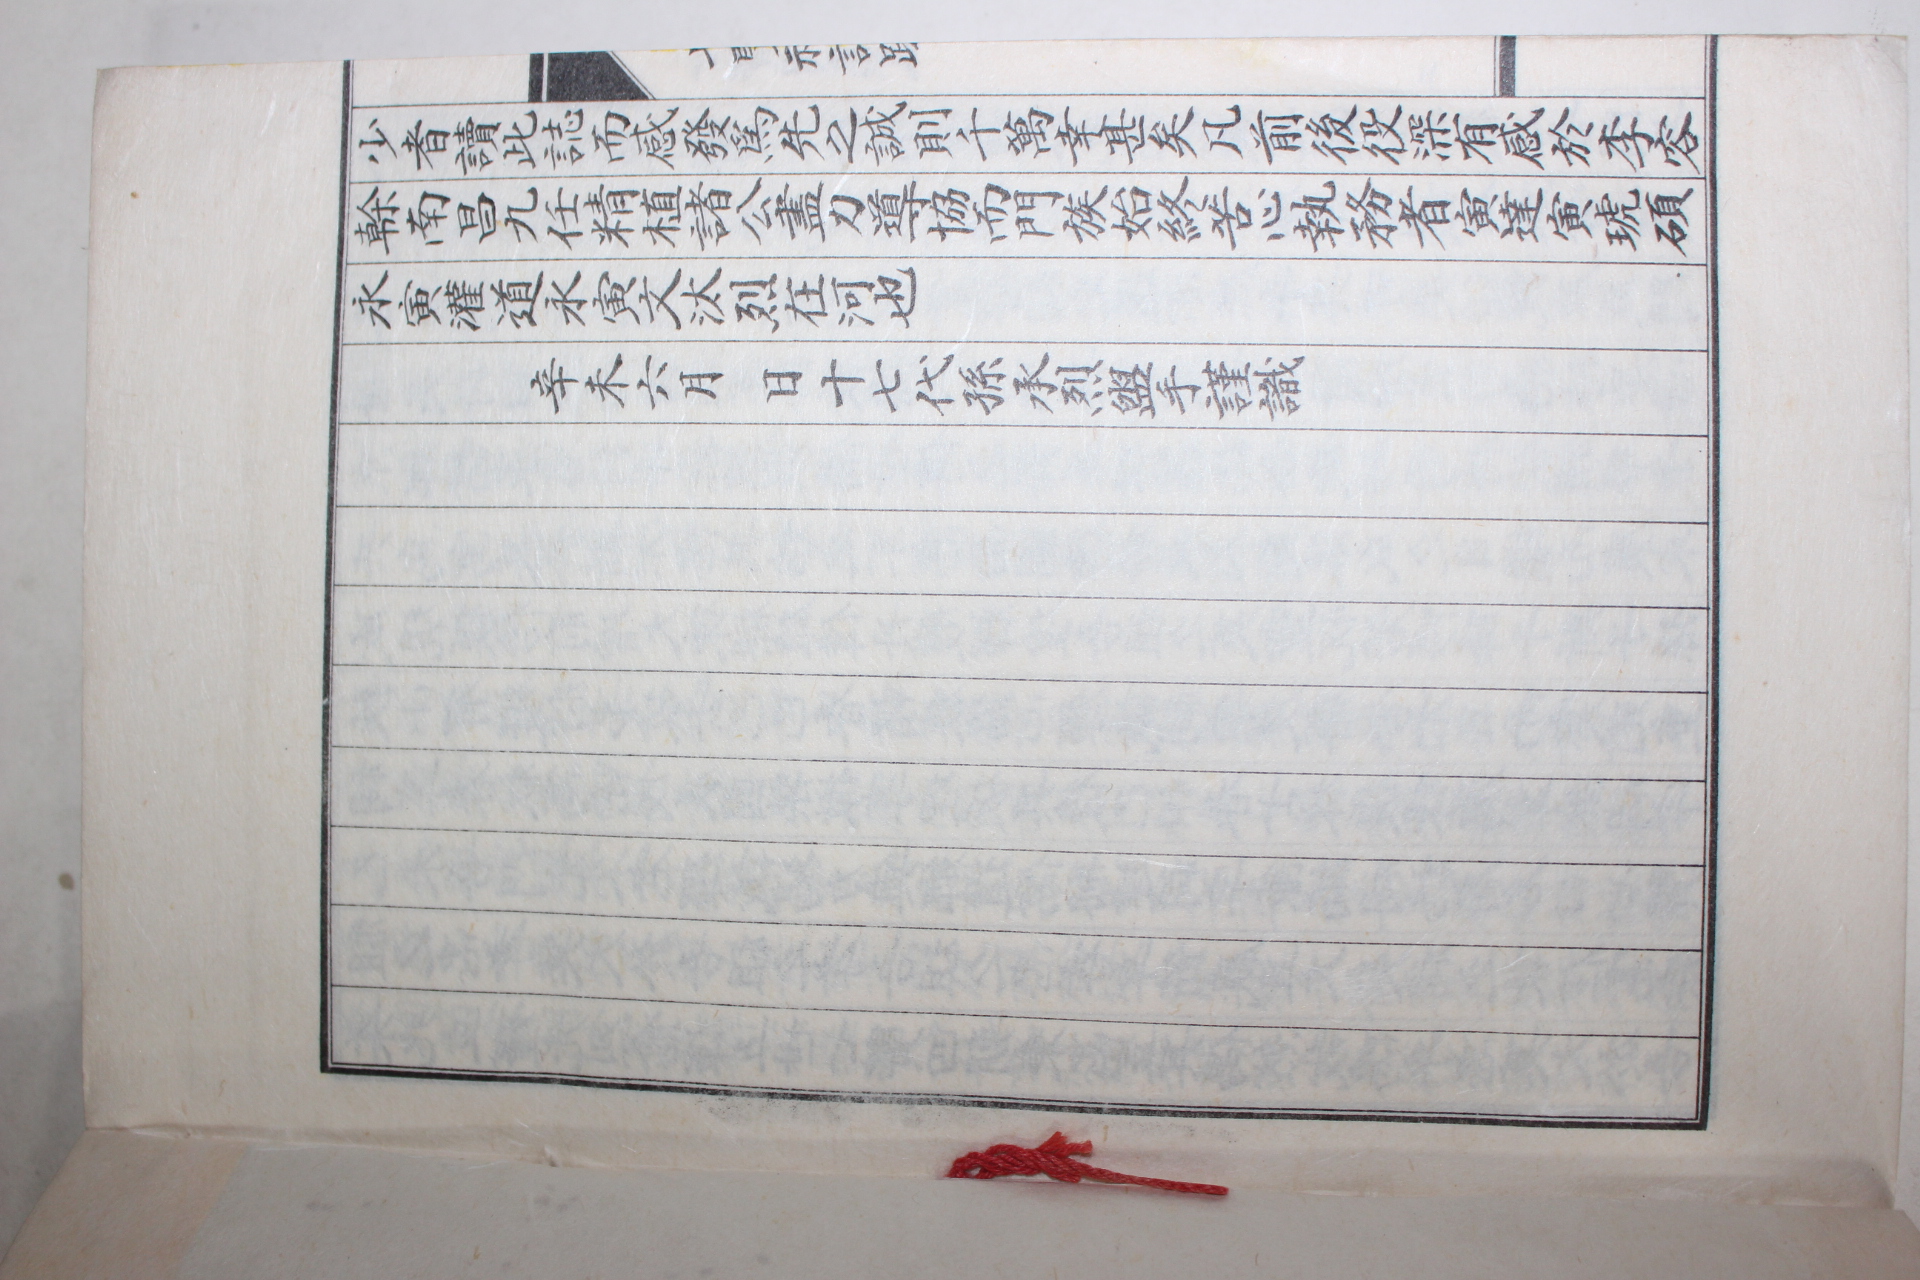 少者讀此誌而感發爲先之誠則千萬幸甚矣凡前後役深有感於李容
榦南昌九任精植諸公盡力導協而門族始終苦心執務者寅達寅琥碩
永寅灌道永寅文汰烈在河也
辛未六月 日十七代孫承烈盥手謹識